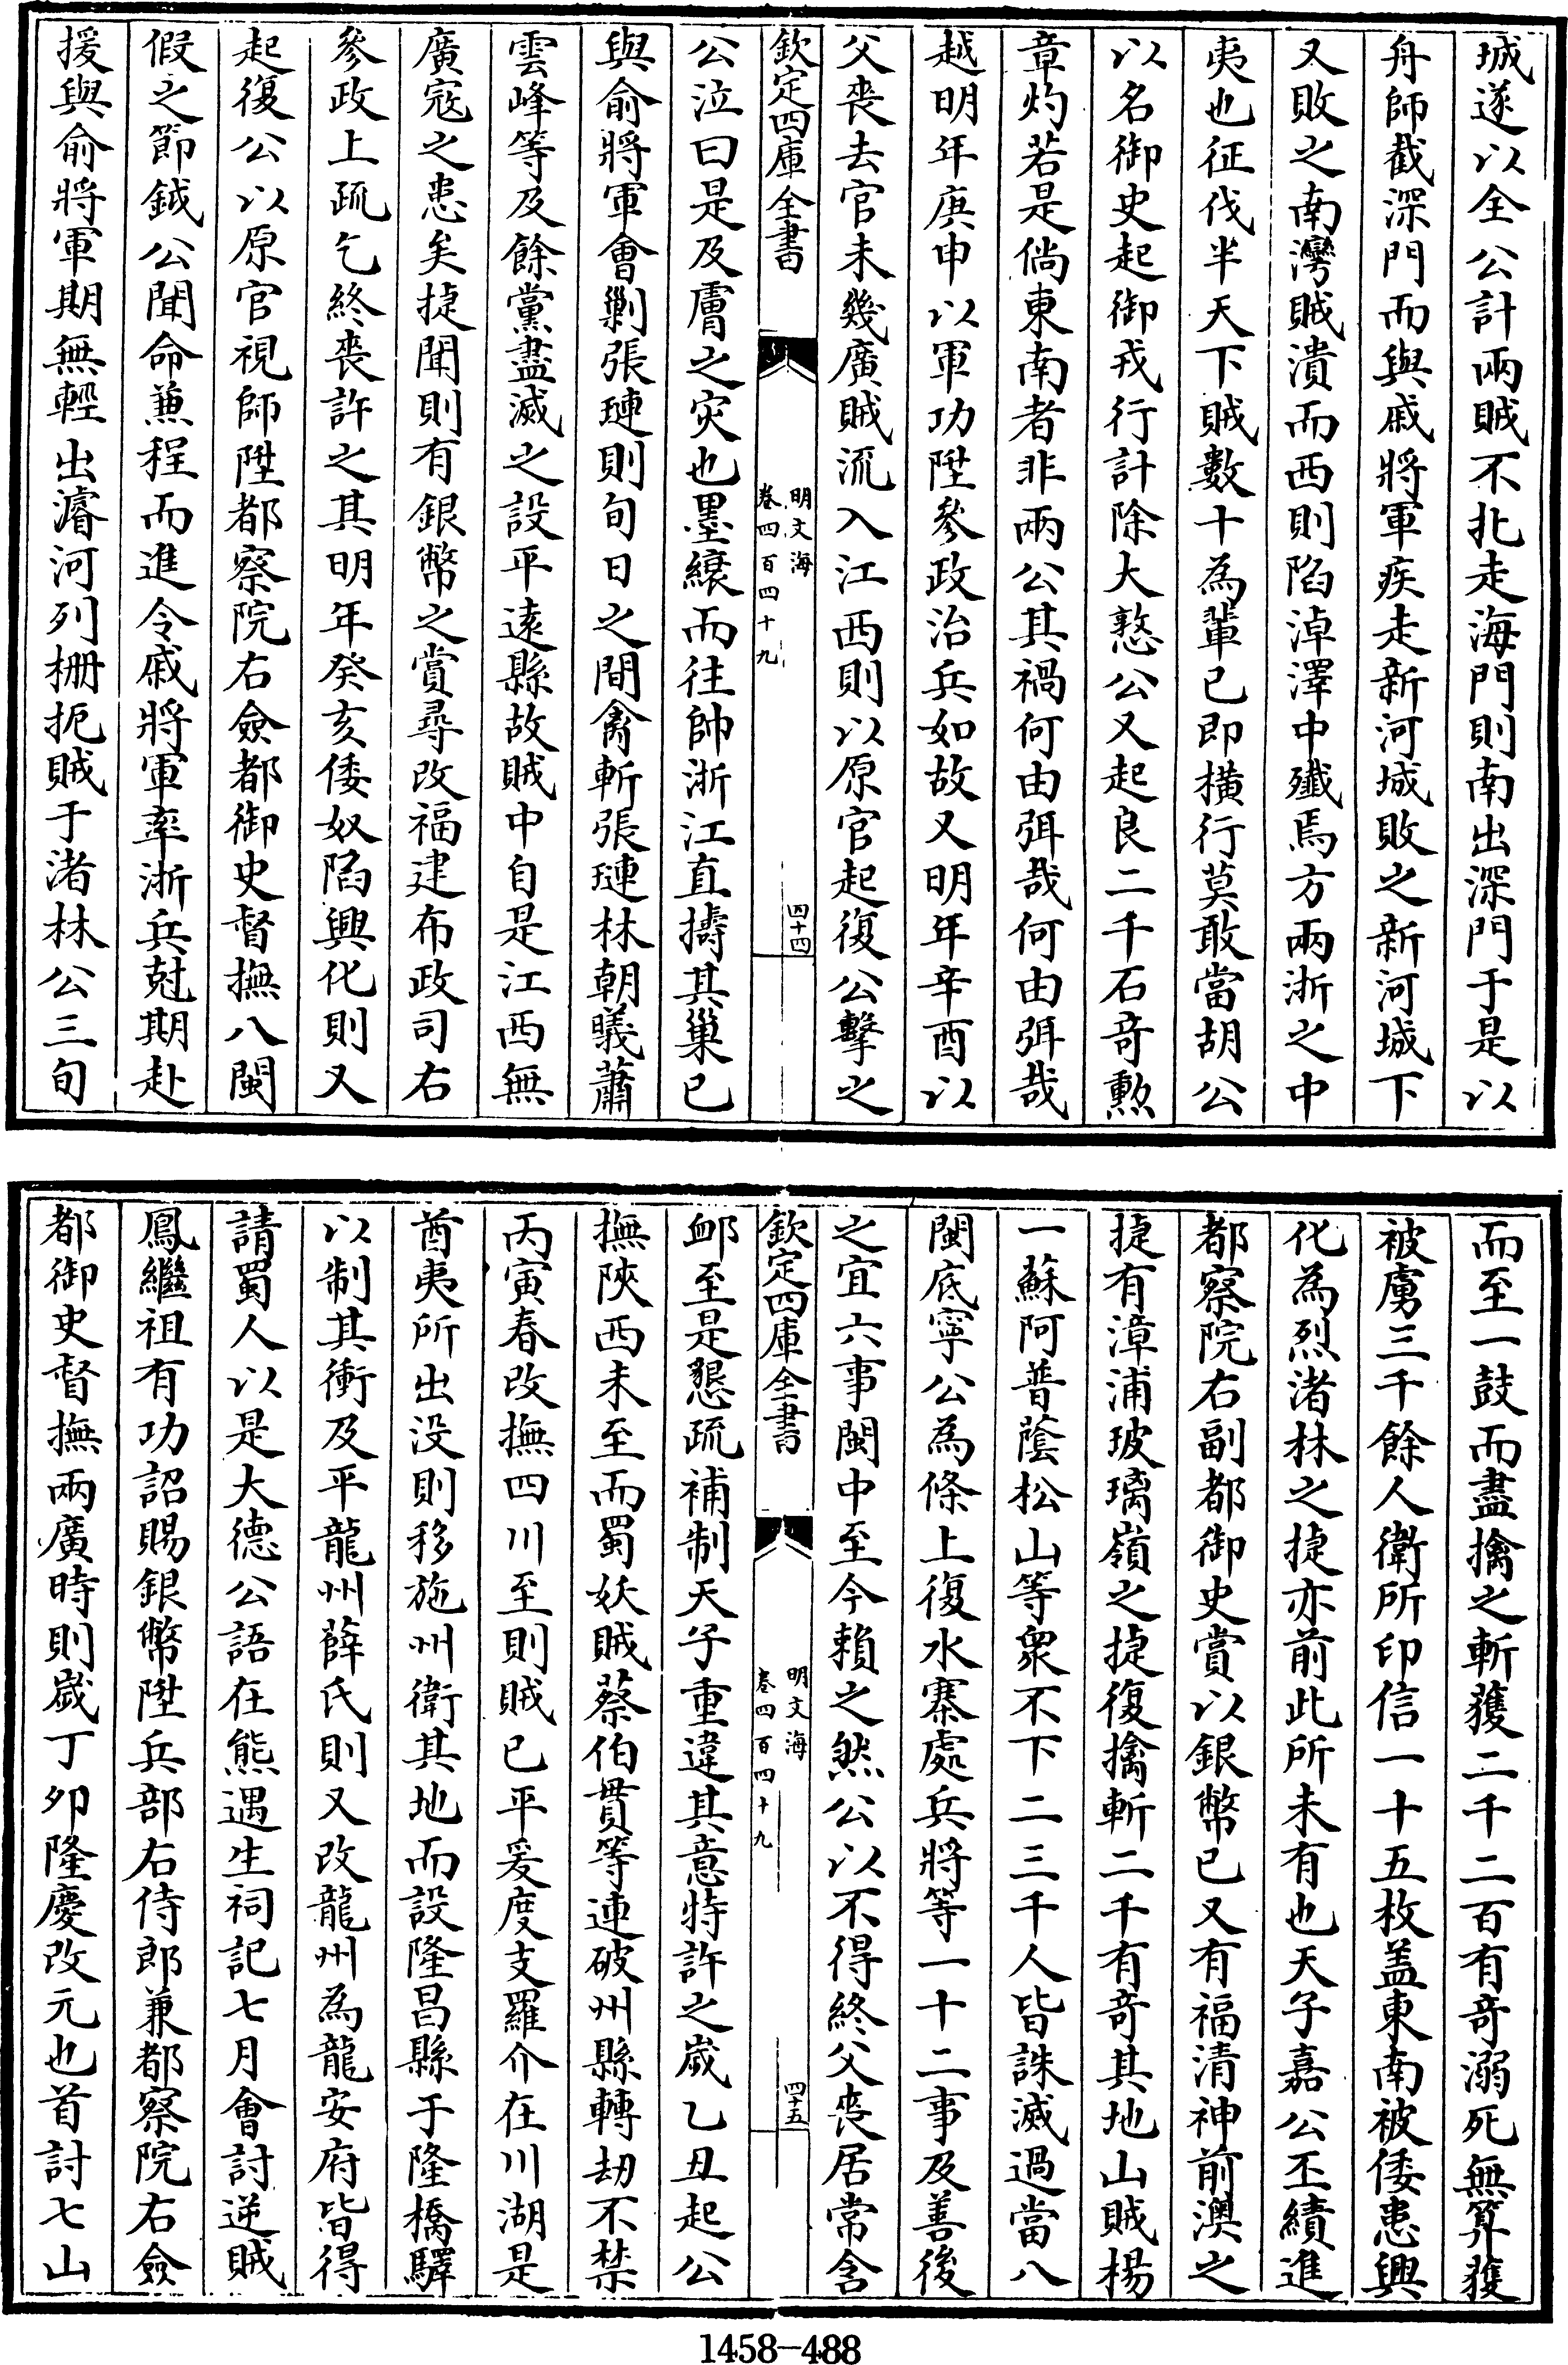 城遂以全公計兩賊不北走海門則南出深門于是以
舟師截深門而與戚將軍疾走新河城敗之新河城下
又敗之南灣賊潰而西則陷淖澤中殲焉方兩浙之中
夷也征伐半天下賊數十為輩已即橫行莫敢當胡公
以名御史起御戎行計除大憝公又起良二千石竒勲
章灼若是倘東南者非兩公其禍何由弭哉何由弭哉
越明年庚申以軍功陞參政治兵如故又明年辛酉以
父喪去官未幾廣賊流入江西則以原官起復公擊之
欽定四庫全書
明文海
卷四百四十九
四十四
公泣曰是及膚之灾也墨縗而往帥浙江直擣其巢已
與俞將軍會剿張璉則旬日之間禽斬張璉林朝曦蕭
雲峰等及餘黨盡滅之設平遠縣故賊中自是江西無
廣寇之患矣捷聞則有銀幣之賞尋改福建布政司右
參政上疏乞終喪許之其明年癸亥倭奴陷興化則又
起復公以原官視師陞都察院右僉都御史督撫八閩
假之節鉞公聞命兼程而進令戚將軍率浙兵尅期赴
援與俞將軍期無輕出濬河列柵扼賊于渚林公三旬
而至一鼓而盡擒之斬獲二千二百有奇溺死無算獲
被虜三千餘人衛所印信一十五枚盖東南被倭患興
化為烈渚林之捷亦前此所未有也天子嘉公丕績進
都察院右副都御史賞以銀幣已又有福清神前澳之
捷有漳浦玻璃嶺之捷復擒斬二千有奇其地山賊楊
一蘇阿普蔭松山等衆不下二三千人皆誅滅過當八
閩底寧公為條上復水寨處兵將等一十二事及善後
之宜六事閩中至今賴之然公以不得終父喪居常含
欽定四庫全書
明文海
卷四百四十九
四十五
䘏至是懇疏補制天子重違其意特許之歲乙丑起公
撫陝西未至而蜀妖賊蔡伯貫等連破州縣轉劫不禁
丙寅春改撫四川至則賊已平爰度支羅介在川湖是
酋夷所出没則移施州衛其地而設隆昌縣于隆橋驛
以制其衝及平龍州薛氏則又改龍州為龍安府皆得
請蜀人以是大德公語在熊遇生祠記七月會討逆賊
鳳繼祖有功詔賜銀幣陞兵部右侍郎兼都察院右僉
都御史督撫兩廣時則歲丁夘隆慶改元也首討七山
1458-488